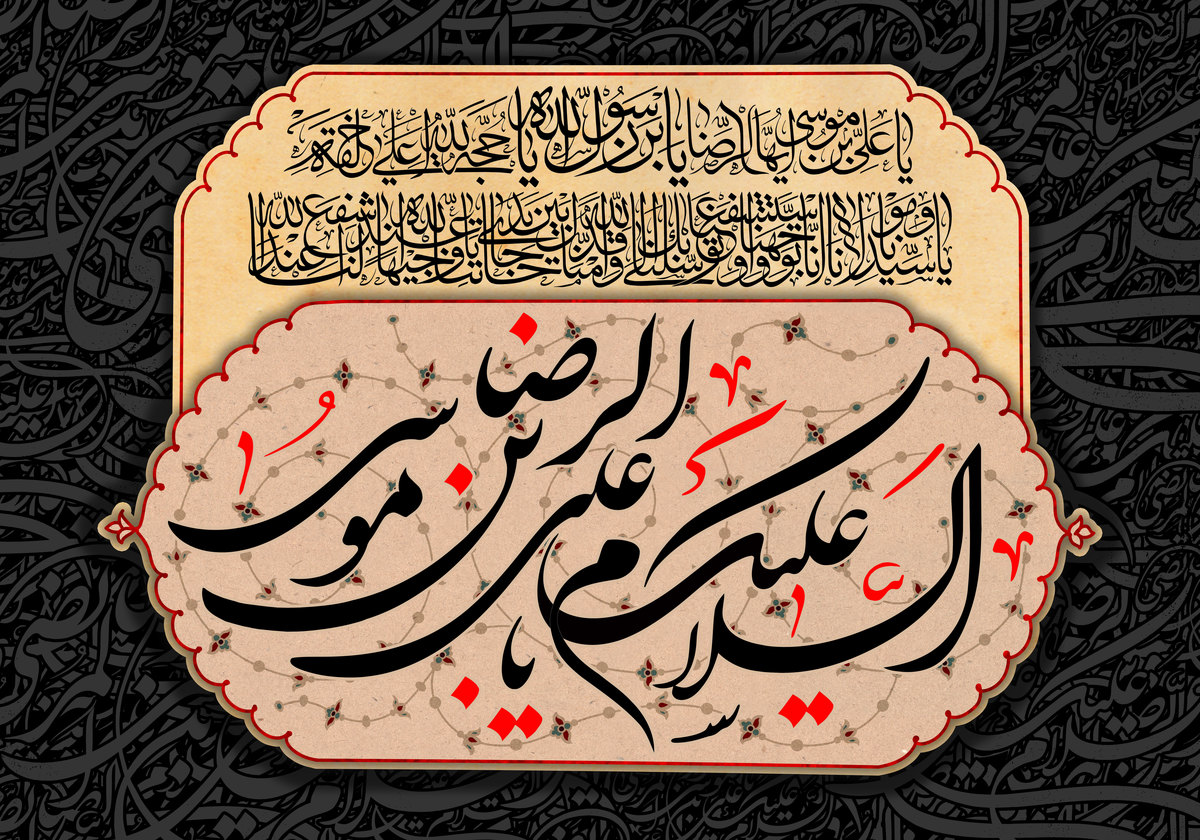 يا علي بن موسى ايها الرضا يابن رسول الله يا حجة الله على خلقه
يا سيدنا و مولانا انا توجهنا و استشفعنا و توسلنا بك الى الله و قدمناك بين يدي حاجاتنا يا وجيها عند الله اشفع لنا عند الله
السلام عليك يا على بن موسى الرضا